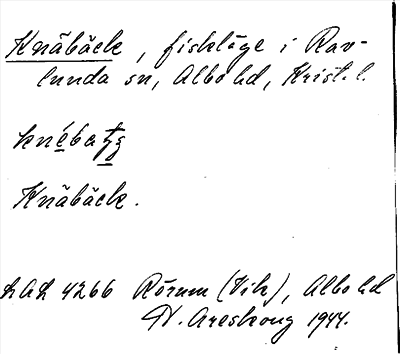 Knäbäck, fiskläge i Rav-
lunda sn, Albo hd, Krist. l.
Knäbäck.
LAL 4266 Rörum (Vik), Albo hd
N. Areskoug 1944.